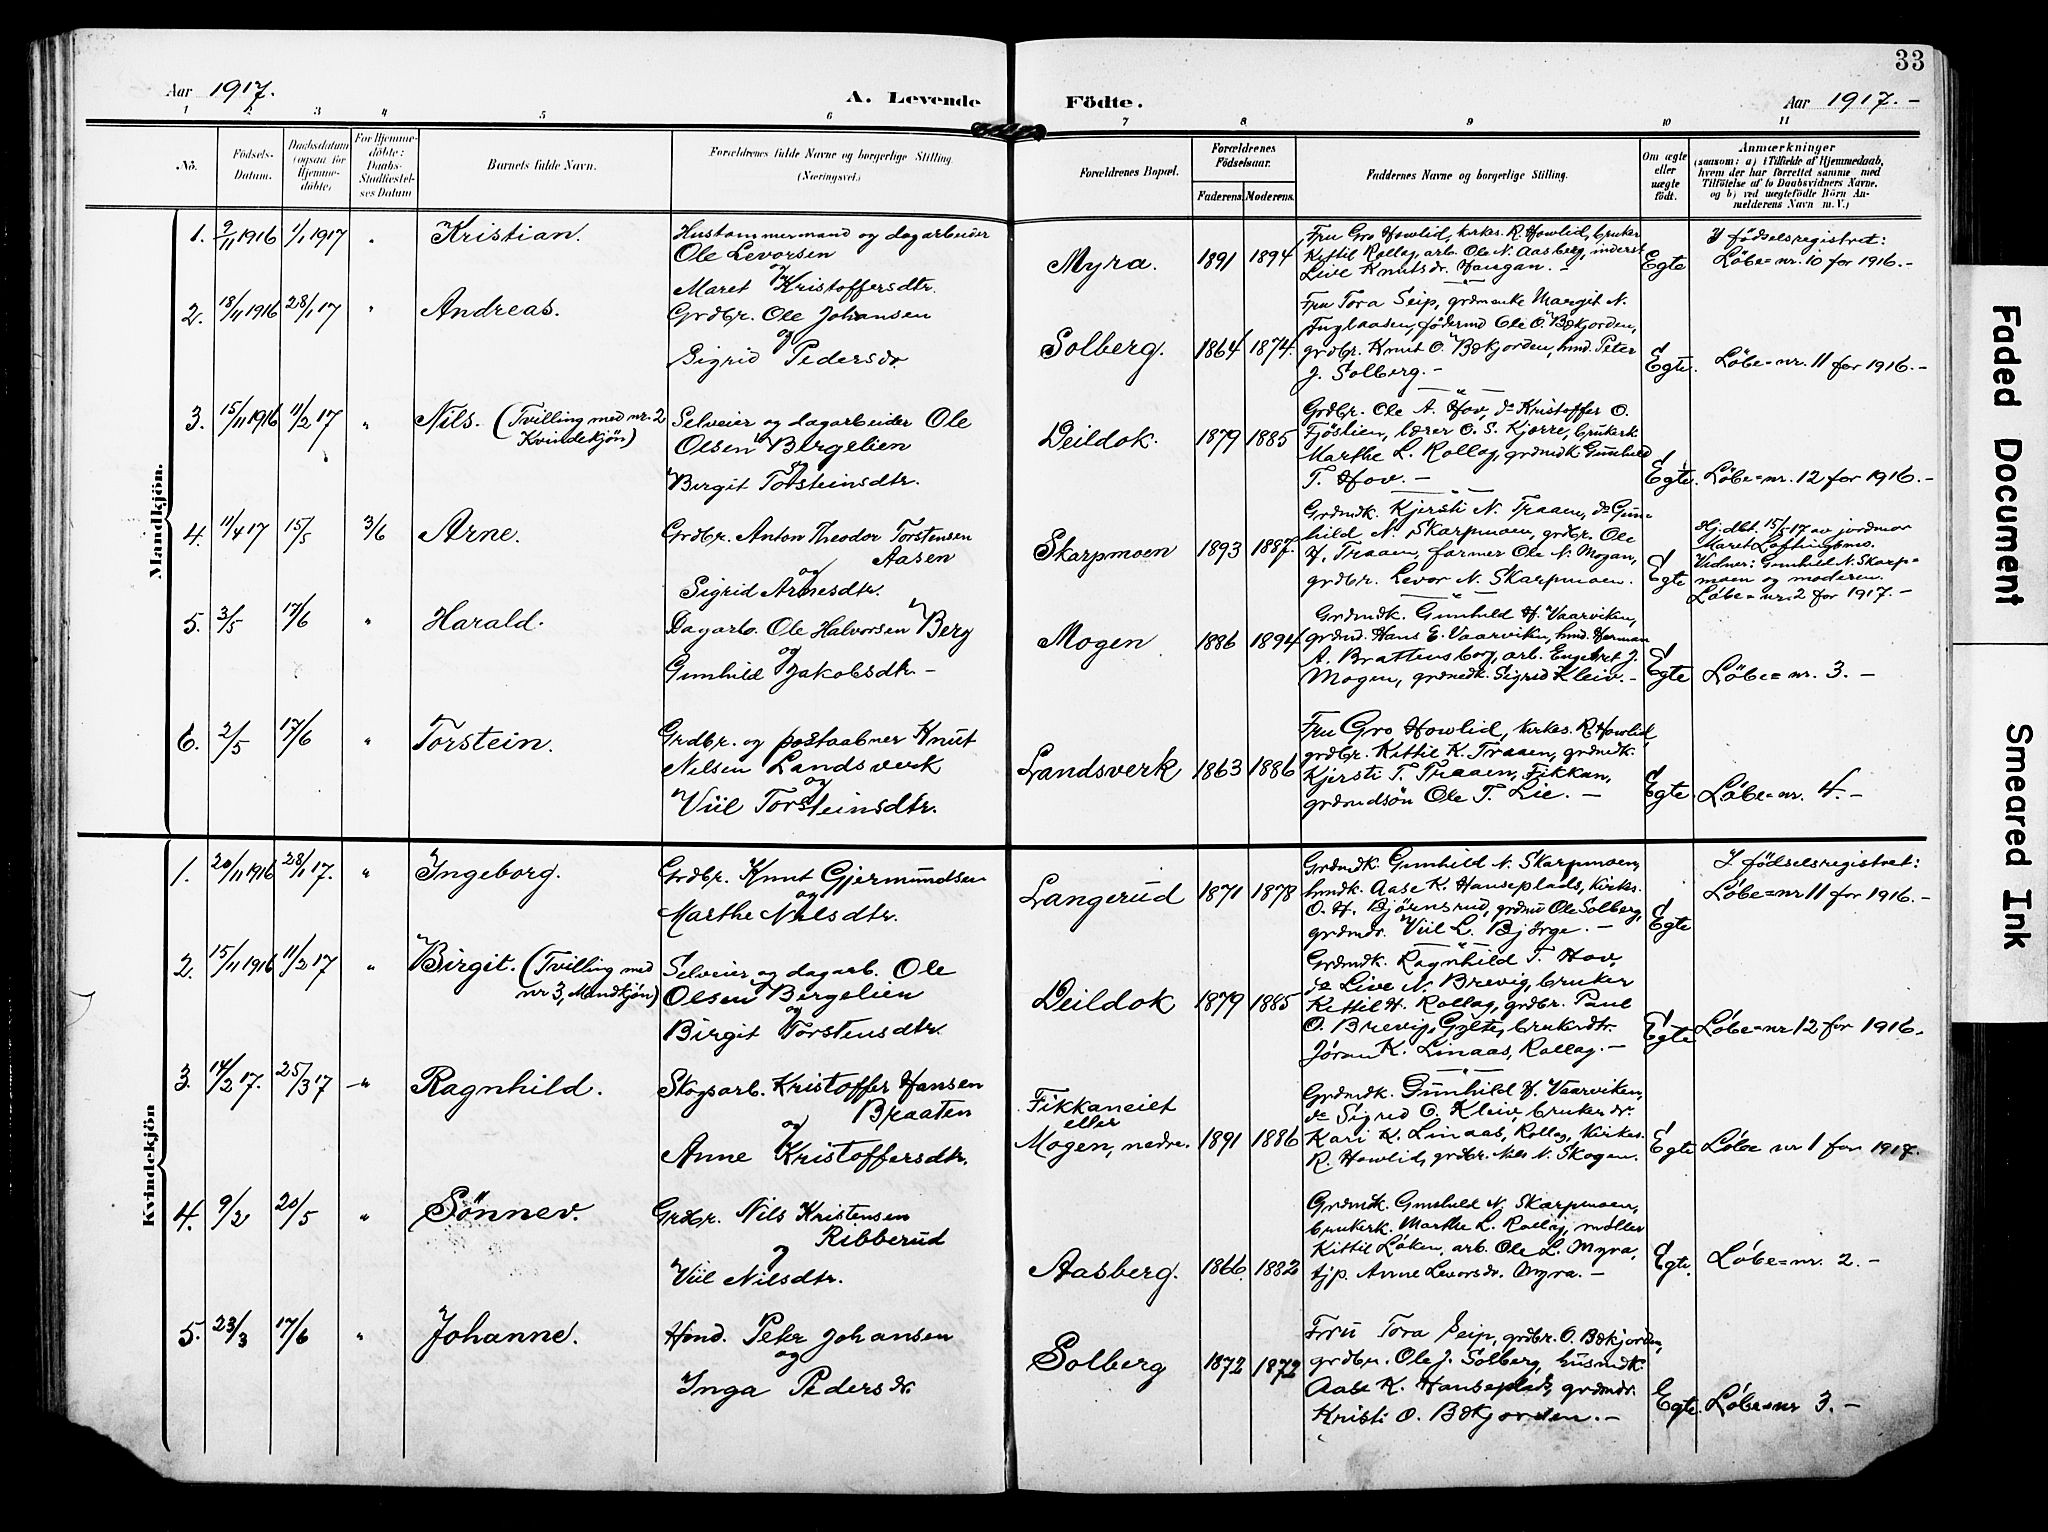 33
Aar 1917.
A. Levende Födte.
Aar 1917.-
1 2 3 4 5 6 7 8 9 10 11
No.
Födsels-
Datum.
Daabsdatum
(ogsaa for
Hjemme-
döbte)
For Hjemme-
döbte:
Daabs-
Stadfæstel-
ses Datum
Barnets fulde Navn.
Forældrenes fulde Navne og borgerlige Stilling.
(Næringsvei.)
Forældrenes Bopæl.
Forældrenes
Födselsaar.
Faderens. Moderens.
Faddernes Navne og borgerlige Stilling.
Om ægte
eller
uægte
födt.
Anmærkninger
(saasom: a) i Tilfælde af Hjemmedaab,
hvem der har forrettet samme med
Tilföielse af to Daabsvidners Navne,
og b) ved uægtefödte Börn An-
melderens Navn m. V.)
Mandkjön.
1. 9/11 1916 1/1 1917 " Kristian.
Hustømmermand og dagarbeider
Ole Levorsen
og
Maret Kristoffersdtr.
Myra. 1891 1894
Fru Gro Howlid, kirkes. R. Howlid, bruker
Kittil Rollag, arb. Ole N. Aasberg, inderst
Live Knutsdr. Haugan. -
Egte
I fødselsregistret:
Løbe=nr. 10 for 1916.-
2. 18/11 1916 28/1 17 " Andreas.
Grdbr. Ole Johansen
og
Sigrid Pedersdr.
Solberg. 1864 1874.
Fru Tora Seip, grdmenke Margit N.
Fuglaasen, födermd Ole O. Bækjorden,
grdbr. Knut O. Bækjorden, hmd. Peter
J. Solberg. -
Egte. Løbe=nr. 11 for 1916.-
3. 15/11 1916 11/2 17 " Nils. (Tvilling med nr. 2
Kvindekjön)
Selveier og dagarbeider Ole
Olsen Bergelien
og
Birgit Torsteinsdtr.
Deildok. 1879 1885
Grdbr. Ole A. Hov, do Kristoffer O.
Fjöslien, lærer O. S. Kjerre, brukerk.
Marthe L. Rollag, grdmdk. Gunhild
T. Hov. -
Egte. Løbe=nr. 12 for 1916.-
4. 11/4 17 15/5 3/6 Arne.
Grdbr. Anton Theodor Torstensen
Aasen
og
Sigrid Arnesdtr.
Skarpmoen 1893 1887.
Grdmdk. Kjersti N. Traaen, do Gun-
hild N. Skarpmoen, grdbr. Ole
H. Traaen, farmer Ole N. Mogan,
grdbr. Levor N. Skarpmoen.
Egte
Hj.dbt. 15/5 17 av jordmor
Maret Loftingsmo.
Vidner: Gunhild N. Skarp=
moen og moderen.
Løbe=nr. 2 for 1917.-
5. 3/5 17/6 " Harald.
Dagarb. Ole Halvorsen Berg
og
Gunhild Jakobsdtr.-
Mogen 1886 1894
Grdmdk. Gunhild H. Vaarviken,
grdmd. Hans E. Vaarviken, hmd. Herman
A. Brattensborg, arb. Engebret J.
Mogen, grdmdk. Sigrid Kleiv.-
Egte Løbe=nr. 3. -
6. 2/5 17/6 " Torstein.
Grdbr. og postaabner Knut
Nilsen Landsverk
og
Viil Torsteinsdtr.
Landsverk 1863 1886
Fru Gro Howlid, kirkes. R. Howlid,
grdbr. Kittil K. Traaen, grdmdk.
Kjersti T. Traaen, Fikkan,
grdmdsön Ole T. Lie. -
Egte Løbe=nr. 4.-
Kvindekjön
1. 20/11 1916 28/1 17. " Ingeborg.
Grdbr. Knut Gjermundsen
og
Marthe Nilsdtr.
Langerud 1871 1878
Grdmdk. Gunhild N. Skarpmoen,
hmdk. Aase K. Hanseplads, kirkes.
O. H. Bjørnsrud, grdmd Ole Solberg,
grdmdr. Viil L. Bjørge. -
Egte
I fødselsregistret:
Løbe=nr 11 for 1916.-
2. 15/11 1916 11/2 17 " Birgit. (Tvilling med
nr 3, Mandkjön)
Selveier og dagarb. Ole
Olsen Bergelien
og
Birgit Torstensdtr.
Deildok 1879 1885
Grdmdk. Ragnhild T. Hov,
do Live N. Brevig, bruker
Kittil H. Rollag, grdbr. Paul
O. Brevig, Gylte, brukerdtr.
Jøran K. Linaas, Rollag. -
Egte Løbe=nr 12 for 1916.-
3. 14/2 17. 25/3 17 -" Ragnhild.
Skogsarb. Kristoffer Hansen
Braaten
og
Anne Kristoffersdtr.
Fikkaneiet
eller
Mogen, nedre. 1891 1886
Grdmdk. Gunhild H. Vaarviken,
do Sigrid O. Kleiv, brukerdr.
Kari K. Linaas, Rollag, kirkes.
R. Howlid, grdbr. Nils N. Skogen.
Egte Løbe nr 1 for 1917.
4. 9/2 20/5 " Sönnev.
Grdbr. Nils Kristensen
Ribberud
og
Viil Nilsdtr.
Aasberg. 1866. 1882
Grdmdk. Gunhild N. Skarpmoen,
brukerk. Marthe L. Rollag, møller
Kittil Løken, arb. Ole L. Myra,
tjp. Anne Levorsdr. Myra. -
Egte. Løbe=nr. 2.-
5. 23/3 17/6 " Johanne.
Hmd. Peter Johansen
og
Inga Pedersdr.
Solberg 1872 1872
Fru Tora Seip, grdbr. O. Bækjorden,
grdbr. Ole J. Solberg, husmdk.
Aase K. Hanseplads, grdmdr.
Kristi O. Bækjorden. -
Egte. Løbe=nr 3.-
Faded Document
Smeared Ink